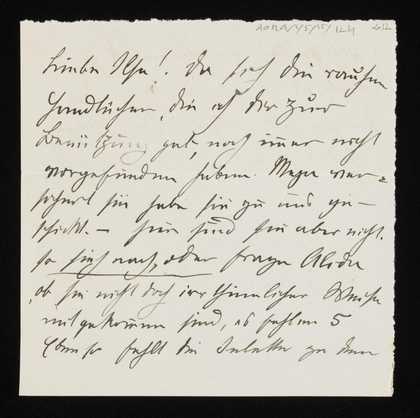 Liebe Ilse! Da sich die rauhen
Handtücher, die ich Dir zur
Benützung gab, noch immer nicht
vorgefunden haben. Meza ver=
sichert sie habe sie zu uns ge=
schickt. – hier sind sie aber nicht.
so sieh nach, oder frage Alida
ob sie nicht doch irrthümlicher Weise
mitgekommen sind, es fehlen 5
Ebenso fehlt die zu den